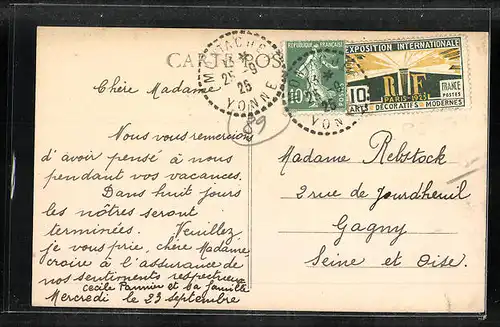 CARTE POS
MATACHE
25 -9
25
YONNE
RÉPUBLIQUE FRANÇAISE
10c
POSTES
25 -9
25
YONNE
EXPOSITION INTERNATIONALE
RF
10c
PARIS-1925
FRANCE
POSTES
ARTS DÉCORATIFS MODERNES
Chère Madame
Nous vous remercion
d'avoir pensé à nous
pendant vos vacances.
Dans huit jours
les nôtres seront
terminées. Veuillez
je vous prie, chère Madame
croire à l'assurance de
nos sentiments respectueux
Cécile Pannier et sa famille
Mercredi le 23 septembre
Madame Rebstock
2 rue de Jourdheuil
Gagny
Seine et Oise.